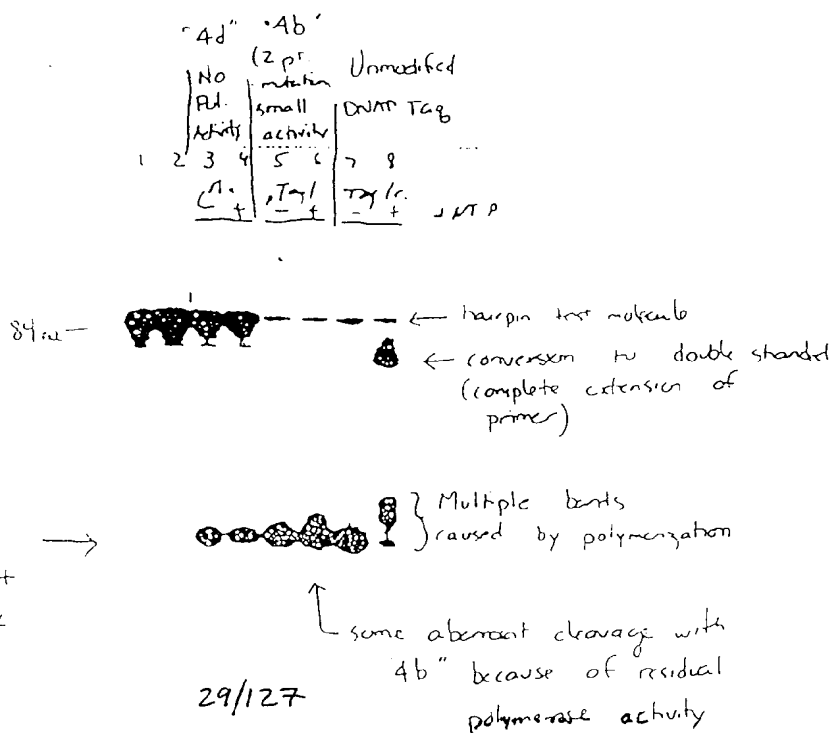 "4d" "4b"
(2 pt.
No mutation Unmodified
Pol. small DNAP Taq
Activity activity
1 2 3 4 5 6 7 8
- + - + - +
84
← hairpin test molecule
← conversion to double stranded
(complete extension of
primer)
Multiple bands
caused by polymerization
some aberrant cleavage with
4b" because of residual
polymerase activity
29/127